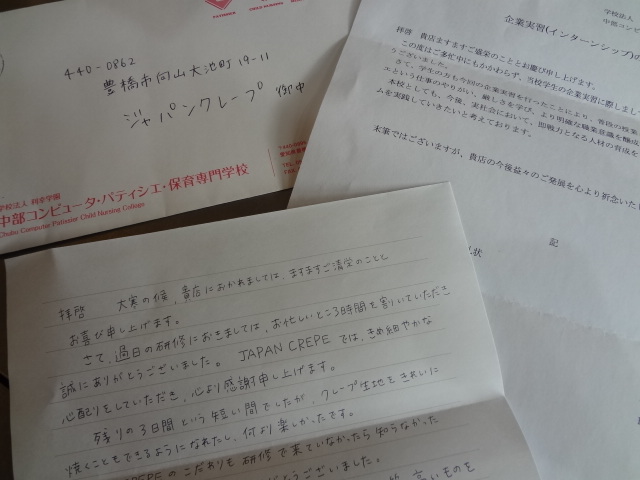 440-0862
豊橋市向山大池町19-11
ジャパンクレープ 御中
学校法人 利幸学園
中部コンピュータ・パティシエ・保育専門学校
Chubu Computer Patissier Child Nursing College
学校法人
中部コンピ
企業実習(インターンシップ)の
拝啓 貴店ますますご盛栄のこととお慶び申し上げます。
この度はご多忙中にもかかわらず、当校学生の企業実習に際しまし
うございました。
さて、学生の方も今回の企業実習を行ったことにより、普段の授業
エという仕事のやりがい、厳しさを学び、より明確な職業意識を醸成
本校としても、今後、実社会において、即戦力となる人材の育成を
ムを実践していきたいと考えております。
末筆ではございますが、貴店の今後益々のご発展を心より祈念いた
記
礼状
拝啓 大寒の候、貴店におかれましては、ますますご清栄のことと
お喜び申し上げます。
さて、過日の研修におきましては、お忙しいところ3時間を割いていただき
誠にありがとうございました。 JAPAN CREPE では、きめ細やかな
心配りをしていただき、心より感謝申し上げます。
残りの3日間という短い間でしたが、クレープ生地をきれいに
焼くこともできるようになれたし、何より楽しかったです。
CREPEのこだわりも研修で来ていなかったら知らなかった
うございました。
高いものを